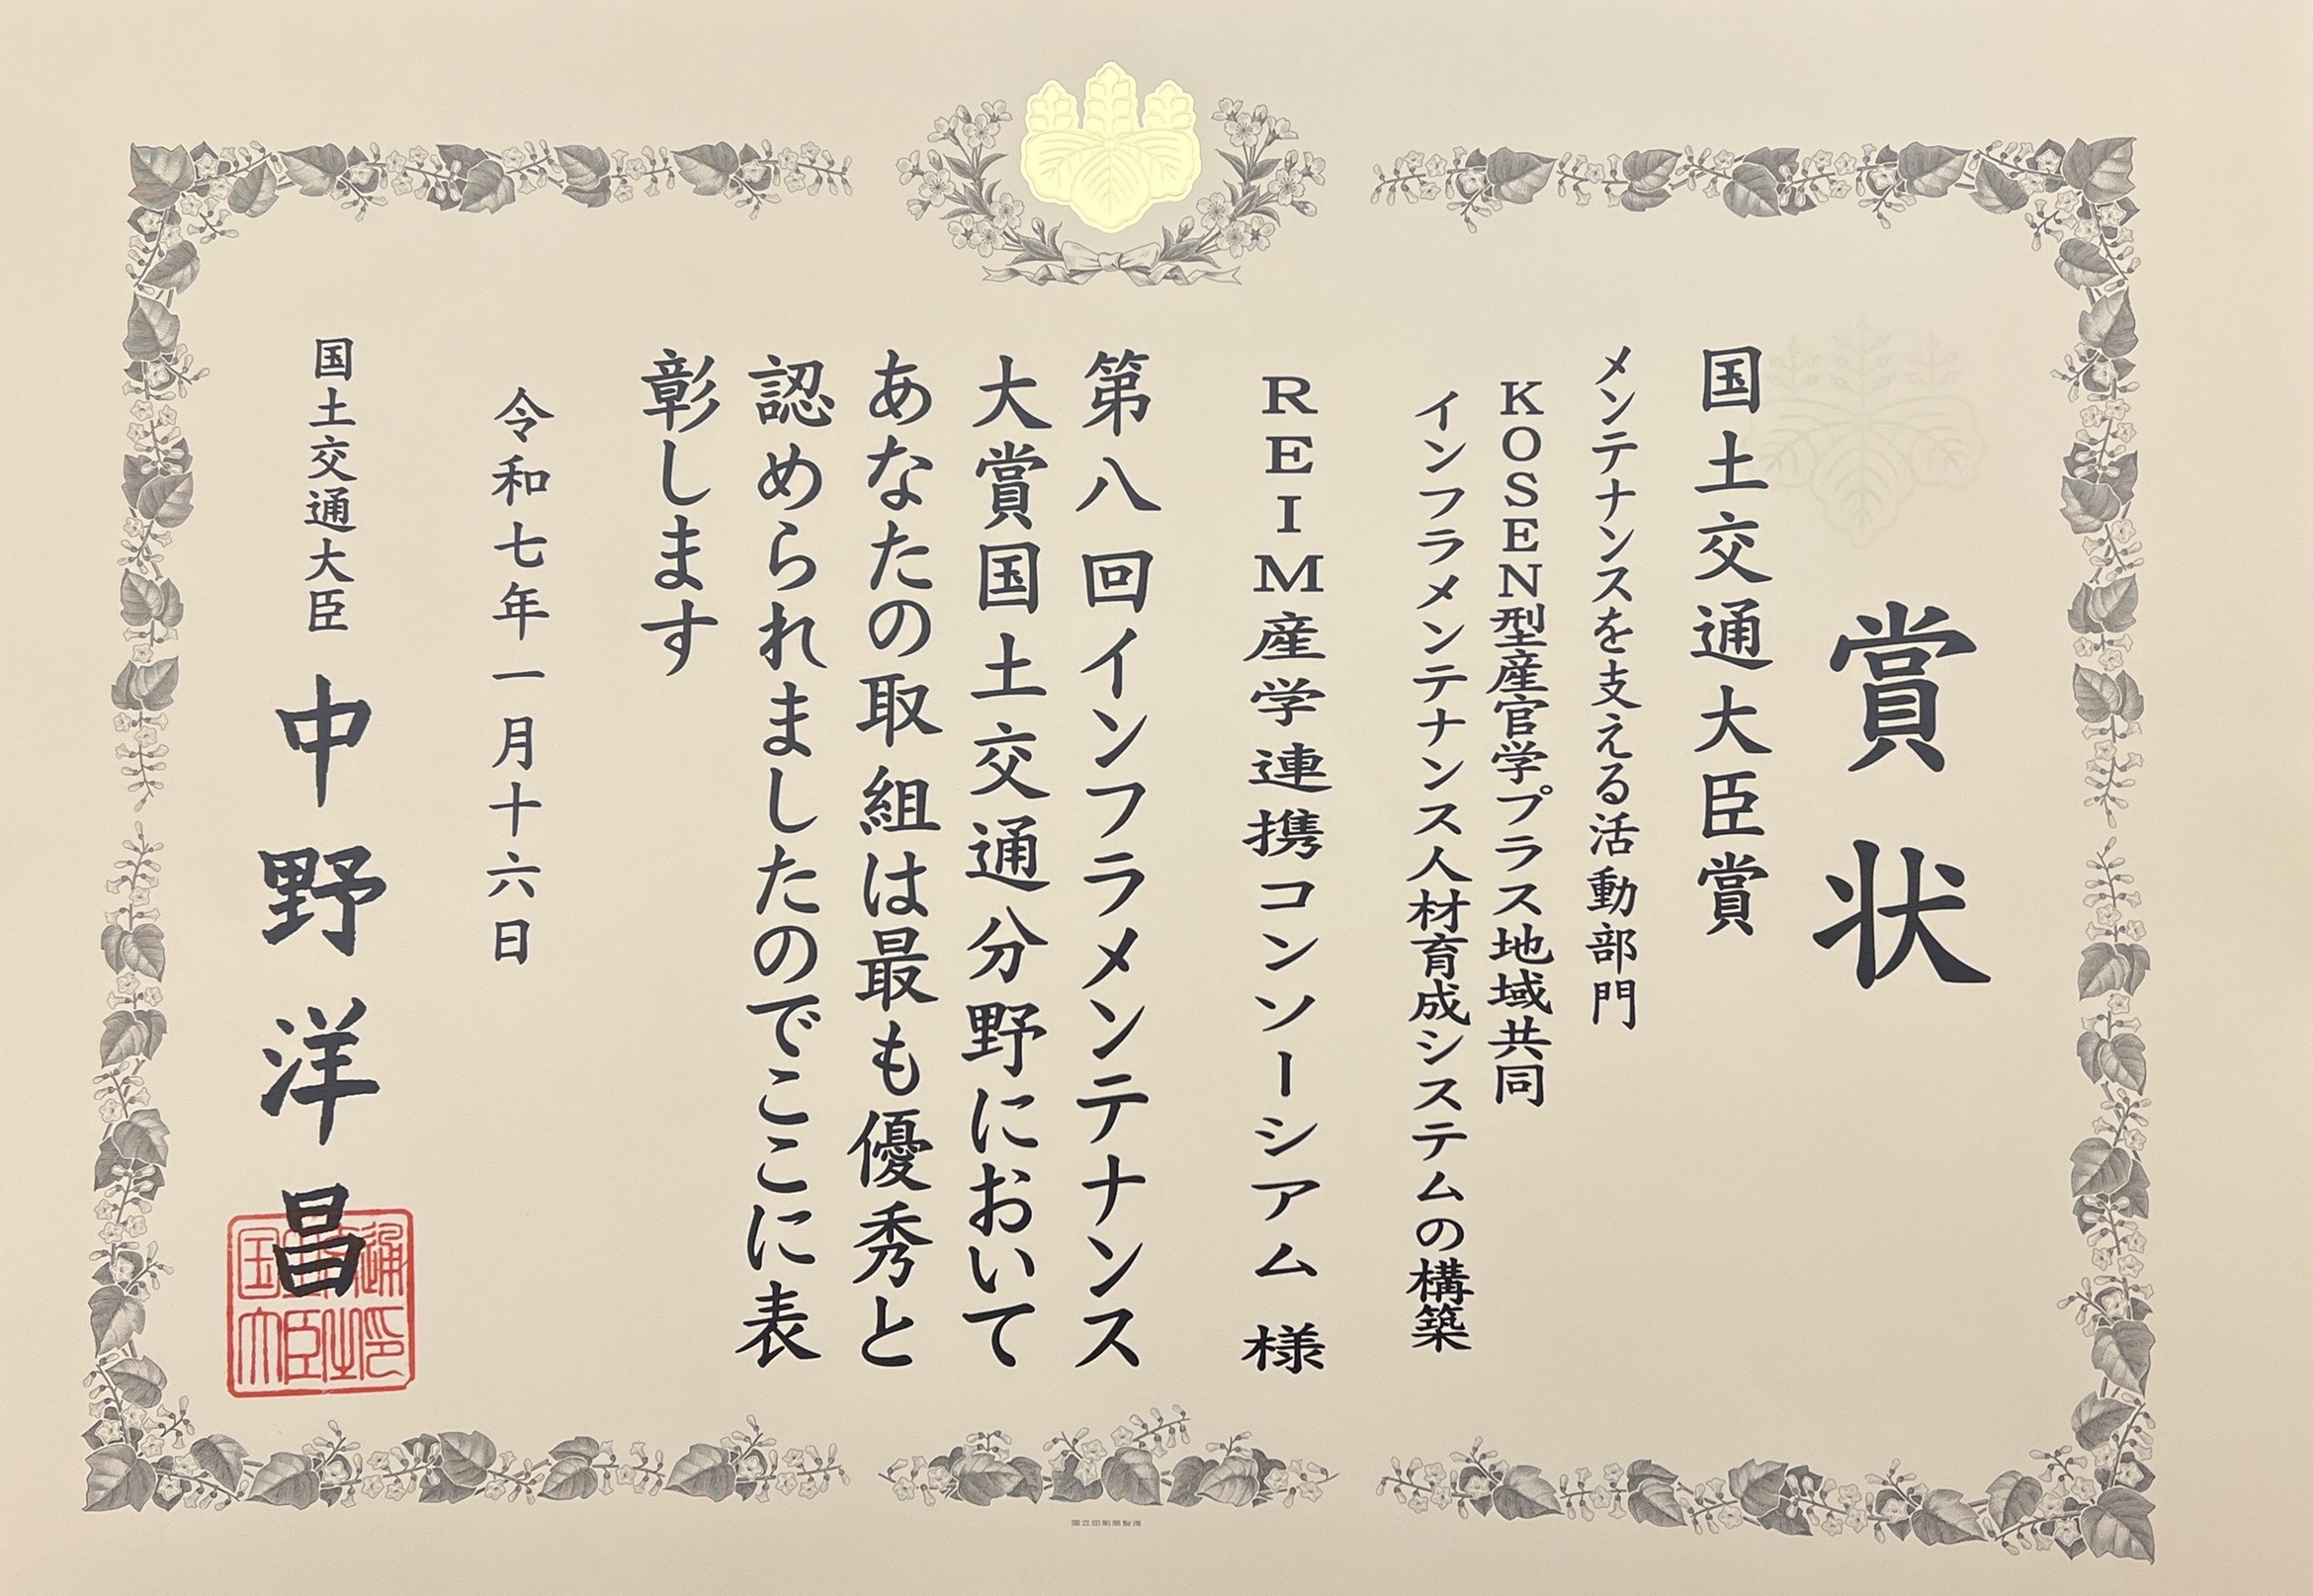 賞状
国土交通大臣賞
メンテナンスを支える活動部門
KOSEN型産官学プラス地域共同
インフラメンテナンス人材育成システムの構築
REIM産学連携コンソーシアム 様
第八回インフラメンテナンス
大賞国土交通分野において
あなたの取組は最も優秀と
認められましたのでここに表
彰します
令和七年一月十六日
国土交通大臣 中野洋昌
国立印刷局製造